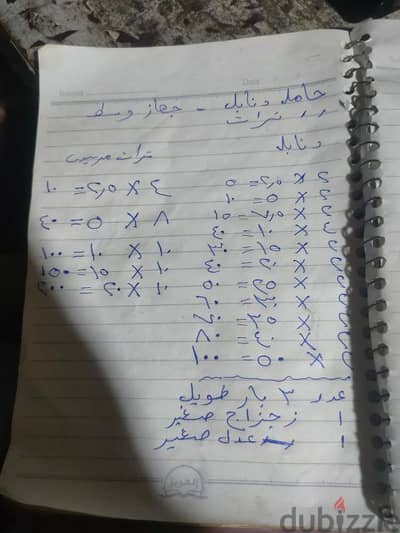 Date
حامل دنابل - جهاز وسط
,, ترات
دنابل
٢ × ٢,٥ = ٥
٢ × ٥ = ١٠
٢ × ٧,٥ = ١٥
٢ × ١٠ = ٢٠
٢ × ١٥ = ٣٠
٢ × ٢٠ = ٤٠
٢ × ٢٥ = ٥٠
٢ × ٣٠ = ٦٠
٢ × ٣٥ = ٧٠
٢ × ٤٠ = ٨٠
٢ × ٥٠ = ١٠٠
ترات
٤ × ٢,٥ = ١٠
٨ × ٥ = ٤٠
١٠ × ١٠ = ١٠٠
١٠ × ١٥ = ١٥٠
١٠ × ٢٠ = ٢٠٠
عدد ٣ بار طويل
١ زجزاج صغير
١ عدل صغير
dubizzle